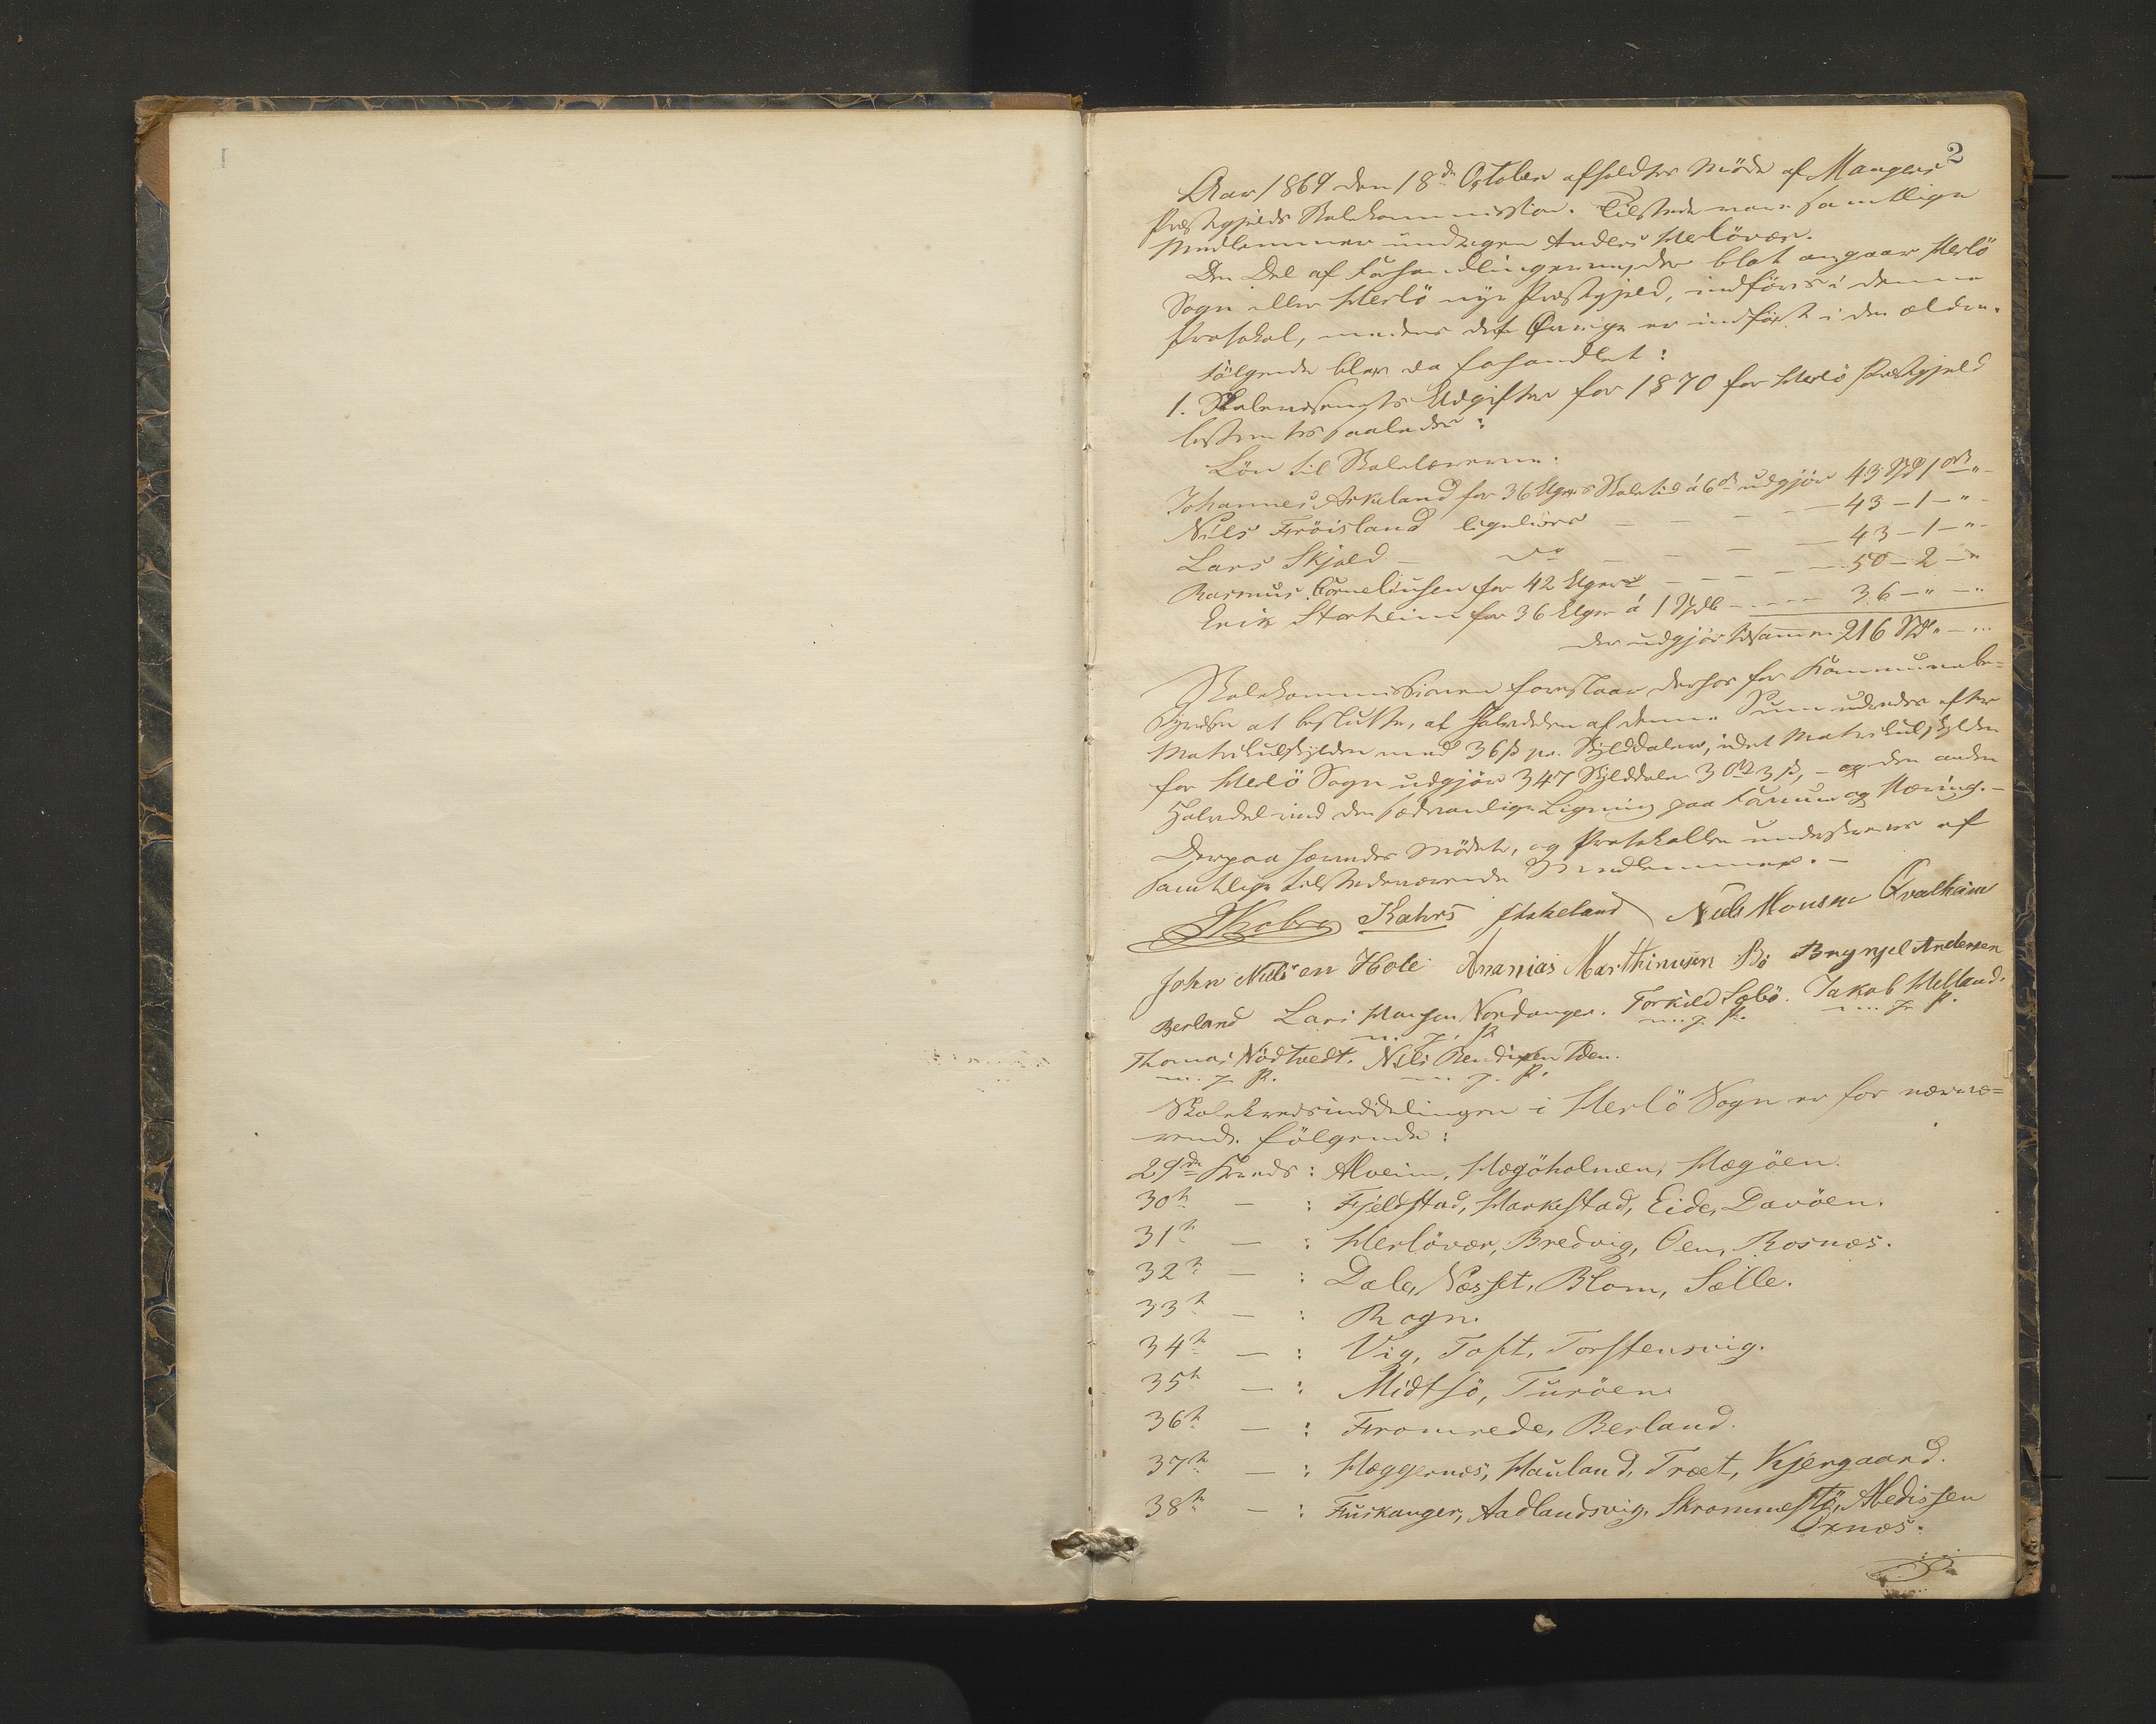 1
2
Aar 1869 den 18de October afholdtes Møde af Mangers
Præstegjelds Skolekommission. Tilstede vare samtlige
Medlemmer undtagen Anders Herlövær.
Den Del af Forhandlingerne, der blot angaar Herlö
Sogn eller Herlö nye Præstegjeld, indföres i denne
Protokol, medens det Øvrige er indfört i den ældre.
Fölgende blev da forhandlet:
1. Skolevæsenets Udgifter for 1870 for Herlö Præstegjeld
bestemtes saaledes:
Lön til Skolelærerne:
Johannes Askeland for 36 Ugers Skoletid á 6 ort udgjör 43 Spd 1 ort " -
Nils Fröisland ligeledes — — — — 43 - 1 - " -
Lars Skjold — do — — — — 43 - 1 - " -
Rasmus Corneliusen for 42 Uger — — — — 50 - 2 - "
Erik Storheim for 36 Uger á 1 Spdlr - - - - 36 - " - "
der udgjör tilsammen 216 Spd " - "
Skolekommissionen foreslaar derhos for Kommunebe=
styrelsen at beslutte, at Halvdelen af denne Sum udredes efter
Matrikulskylden med 36 ß pr. Skylddaler, idet Matrikulskylden
for Herlö Sogn udgjör 347 Skylddaler 3 ort 3 ß, - og den anden
Halvdel ved den sædvanlige Ligning paa Formue og Næring. -
Derpaa hævedes Mödet, og Protokollen underskreves af
samtlige tilstedeværende Medlemmer. -
Kahrs Askeland Nils Monsen Qvalheim
John Nilsen Hole Ananias Marthinusen Bö Brynjel Andersen
Berland Lars Hansen Nordanger. Torkild Sæbö. Jakob Helland.
m. p. P. m. p. P. m. p. P.
Thomas Nödtvedt. Nils Bendixen Toen.
m. p. P. m. p. P.
Skolekredsinddelingen i Herlö Sogn er for nærvæ=
rende fölgende:
29de Kreds: Alveim, Hægöholmen, Hægöen.
30te — : Fjeldstad, Harkestad, Eide, Davöen.
31te — : Herlövær, Bredvig, Oen, Rosnæs.
32te — : Dale, Næsset, Blom, Sælle.
33te — : Rogn.
34te — : Vig, Toft, Torstensvig.
35te — : Midtsö, Turöen.
36te — : Fromrede, Berland.
37te — : Hæggernæs, Hauland, Træet, Kjergaard.
38te — : Fuskanger, Aadlandsvig, Skrommestö, Abedissen
Oxnæs.